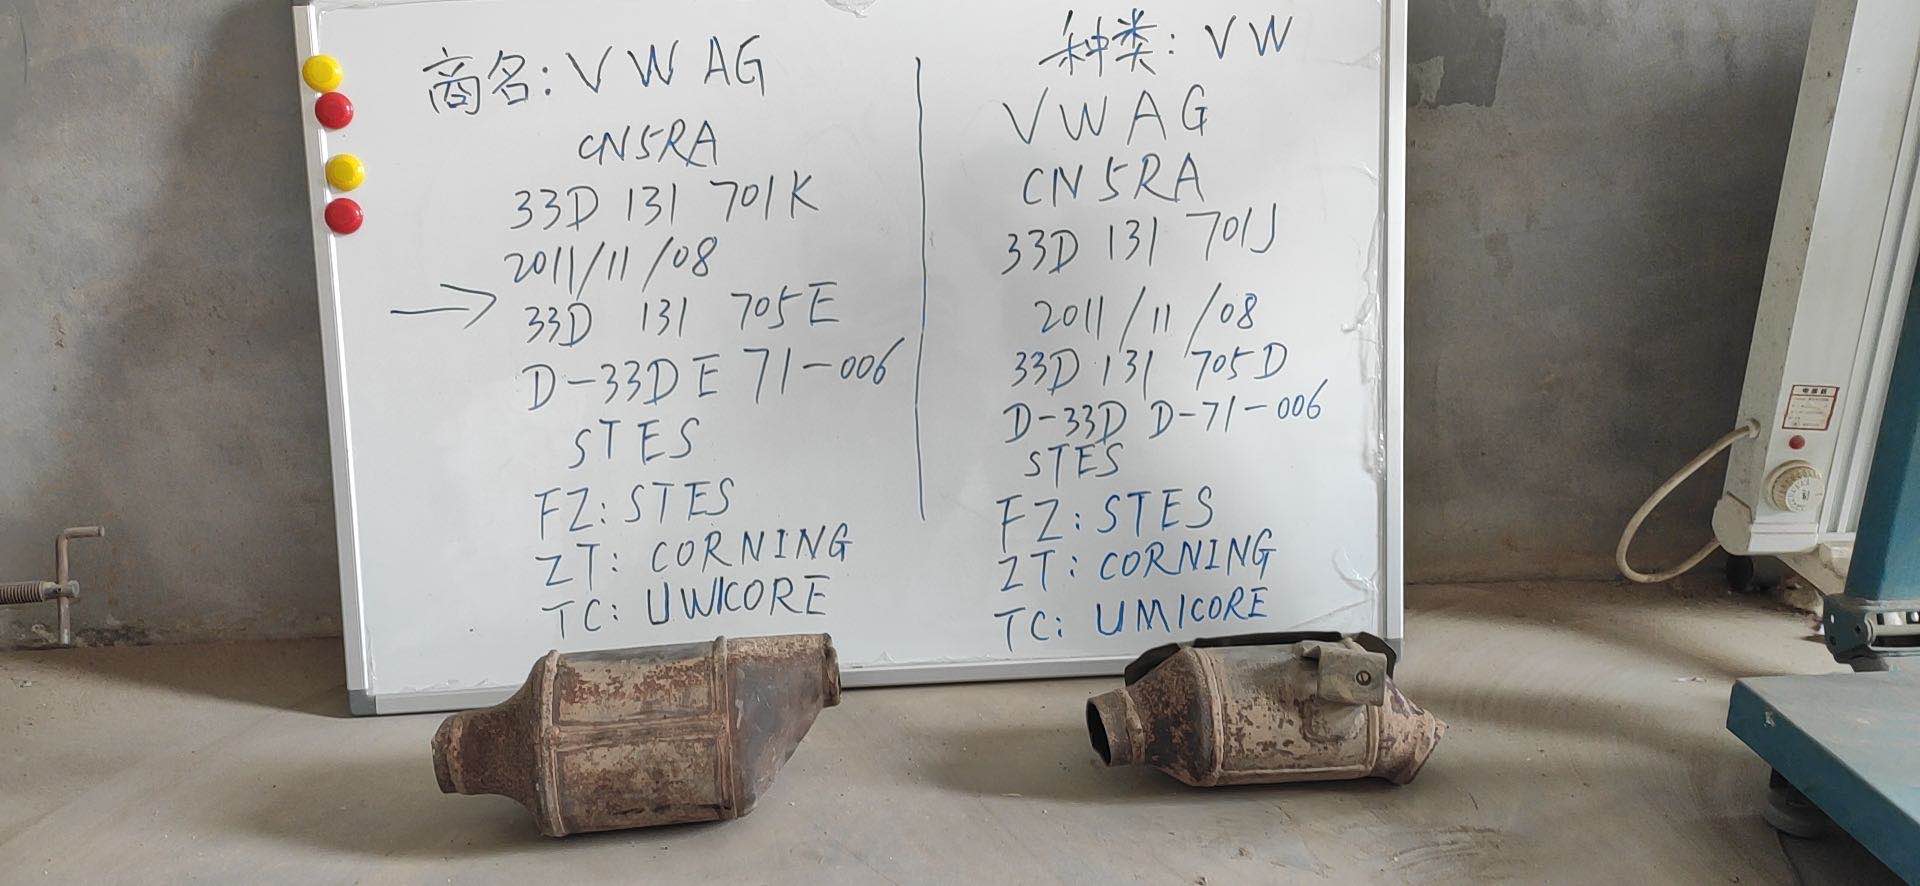 商名: VW AG
CN5RA
33D 131 701K
2011/11/08
33D 131 705E
D-33D E 71-006
STES
FZ: STES
ZT: CORNING
TC: UWICORE
种类: VW
VW AG
CN5RA
33D 131 701J
2011/11/08
33D 131 705D
D-33D D-71-006
STES
FZ: STES
ZT: CORNING
TC: UMICORE